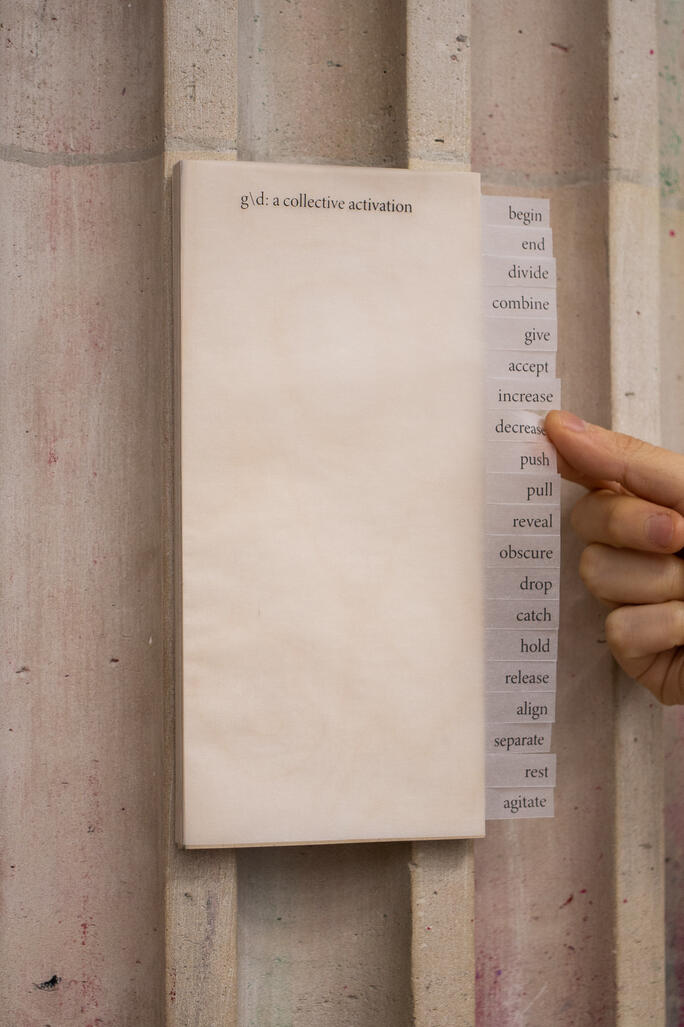 g\d: a collective activation
begin
end
divide
combine
give
accept
increase
decrease
push
pull
reveal
obscure
drop
catch
hold
release
align
separate
rest
agitate